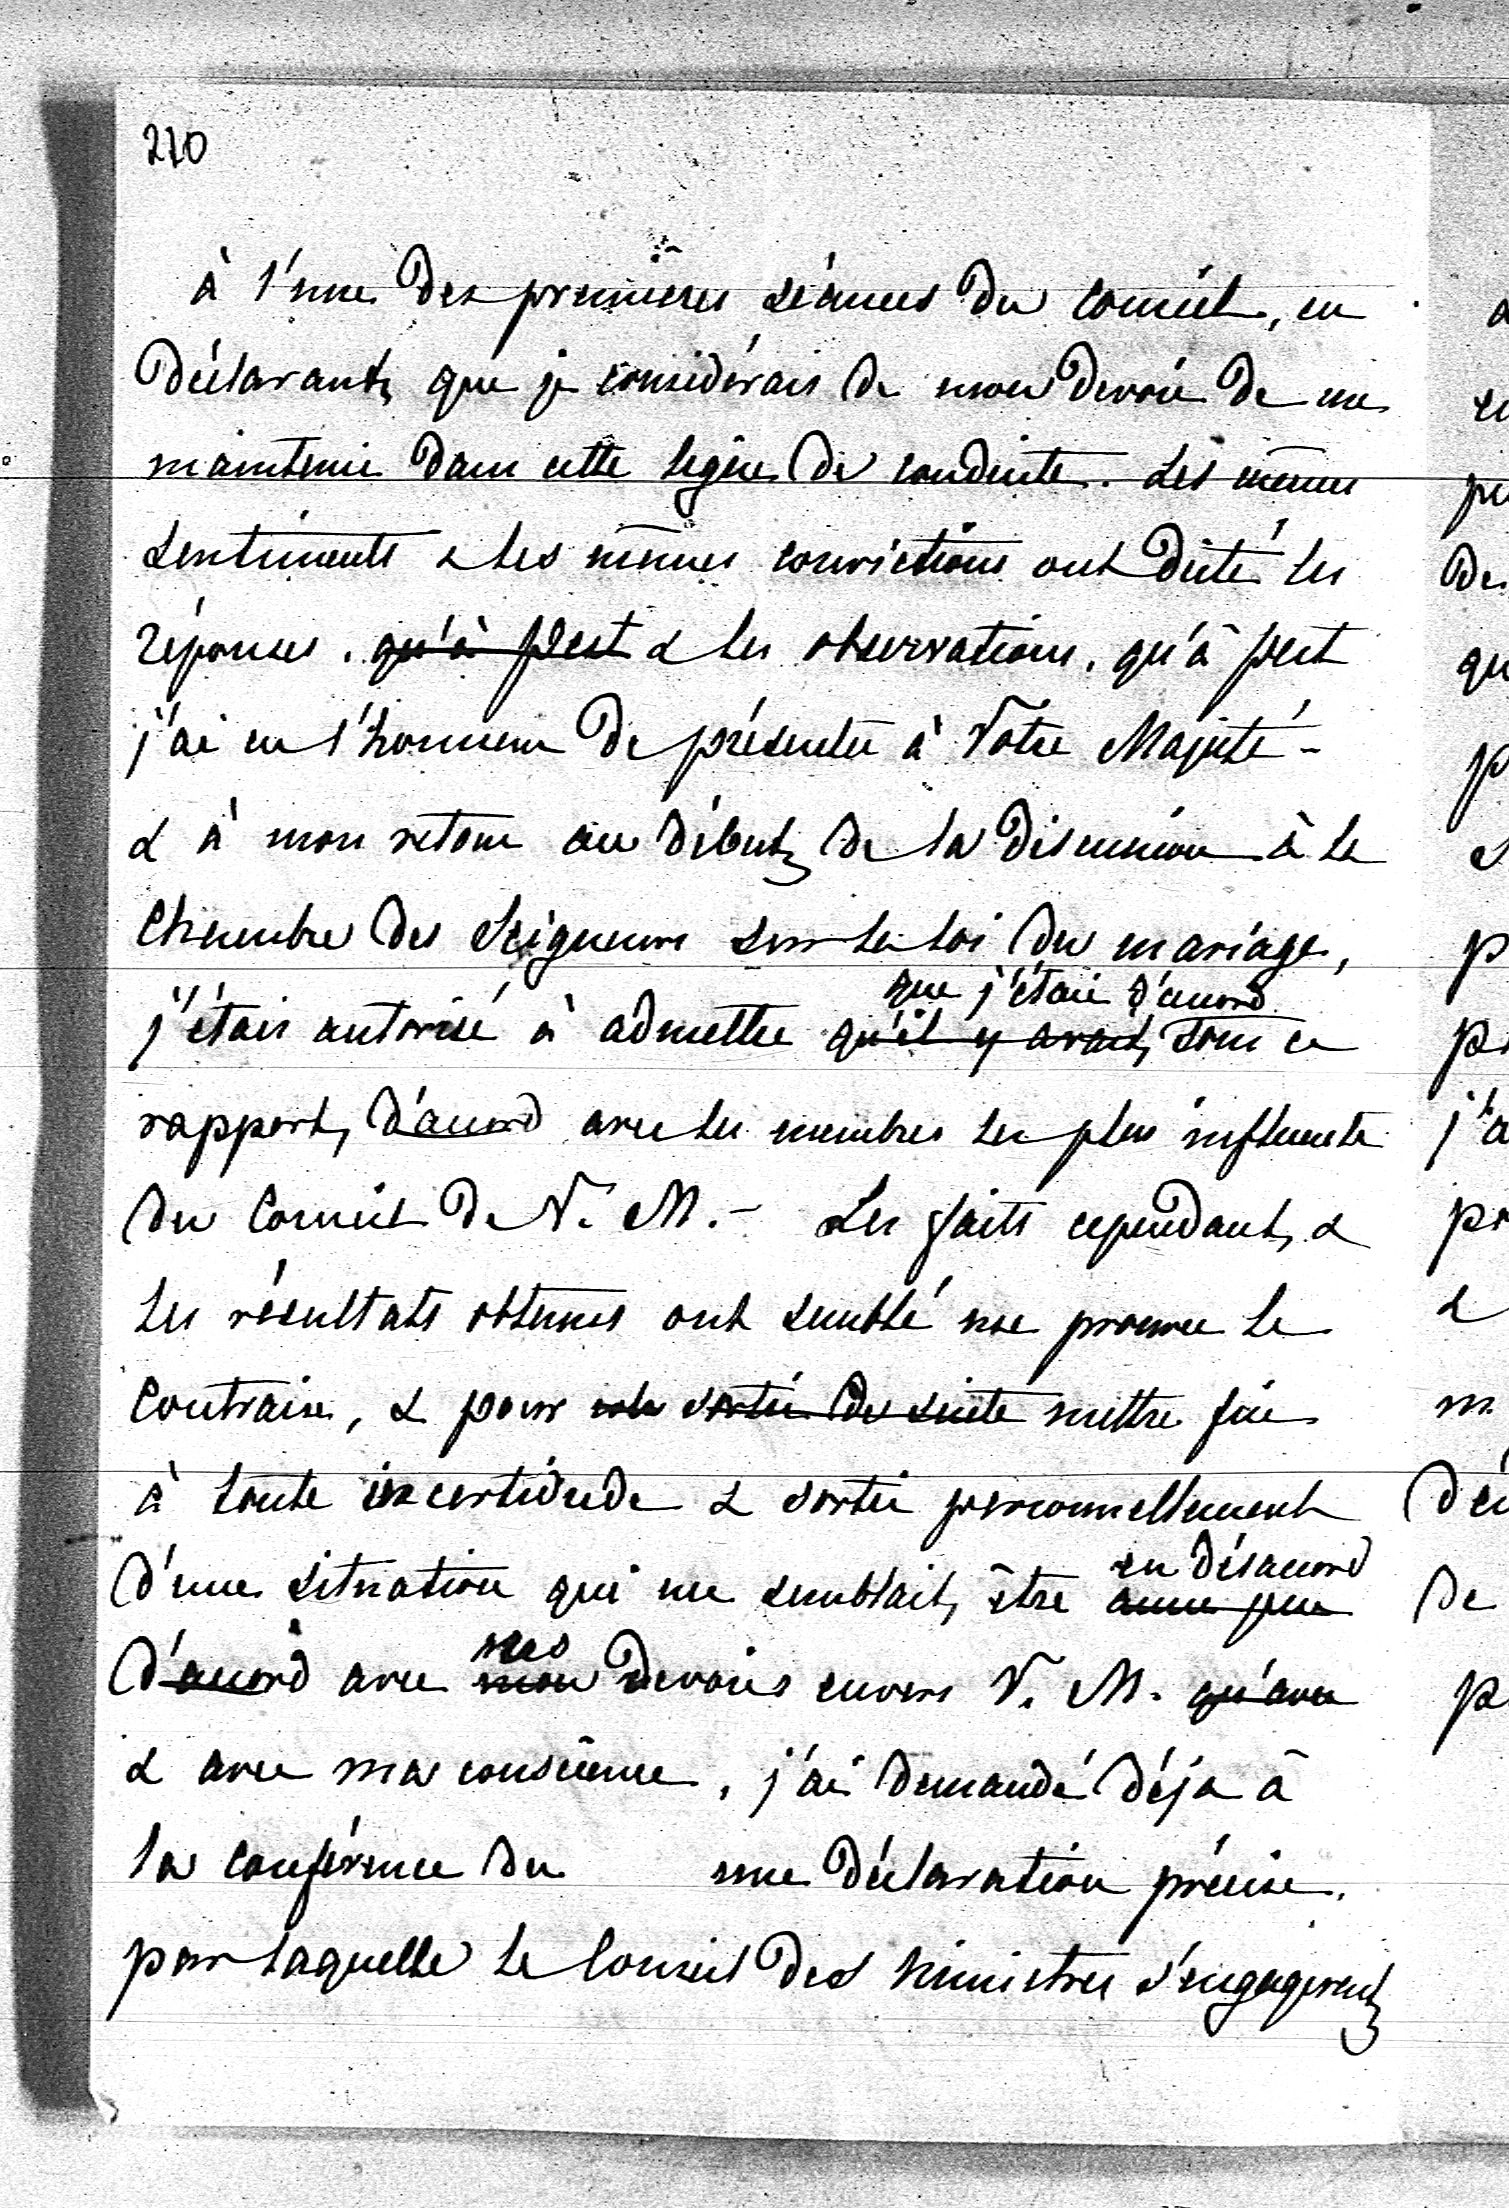 210
à l'une des premières séances du conseil, en
déclarant, que je considérais de mon devoir de me
maintenir dans cette ligne de conduite. Les mêmes
sentiments & les mêmes convictions ont dicté les
réponses, qu'à Pest & les observations, qu'à Pest
j'ai eu l'honneur de présenter à Votre Majesté –
& à mon retour au début, de la discussion à la
Chambre des Seigneurs sur la loi du mariage,
que j'étais d'accord
j'étais autorisé à admettre qu'il y avait, sous ce
rapport, d'accord avec les membres les plus influents
du Conseil de V. M. – Les faits cependant, &
les résultats obtenus ont semblé me prouver le
contraire, & pour sortir de suite mettre fin
à toute incertitude & sortir personnellement
en désaccord
d'une situation qui me semblait, être aussi peu
mes
d'accord avec mon devoirs envers V. M. qu'avec
& avec ma conscience, j'ai demandé déjà à
la conférence du une déclaration précise,
par laquelle le Conseil des Ministres s'engagerait,